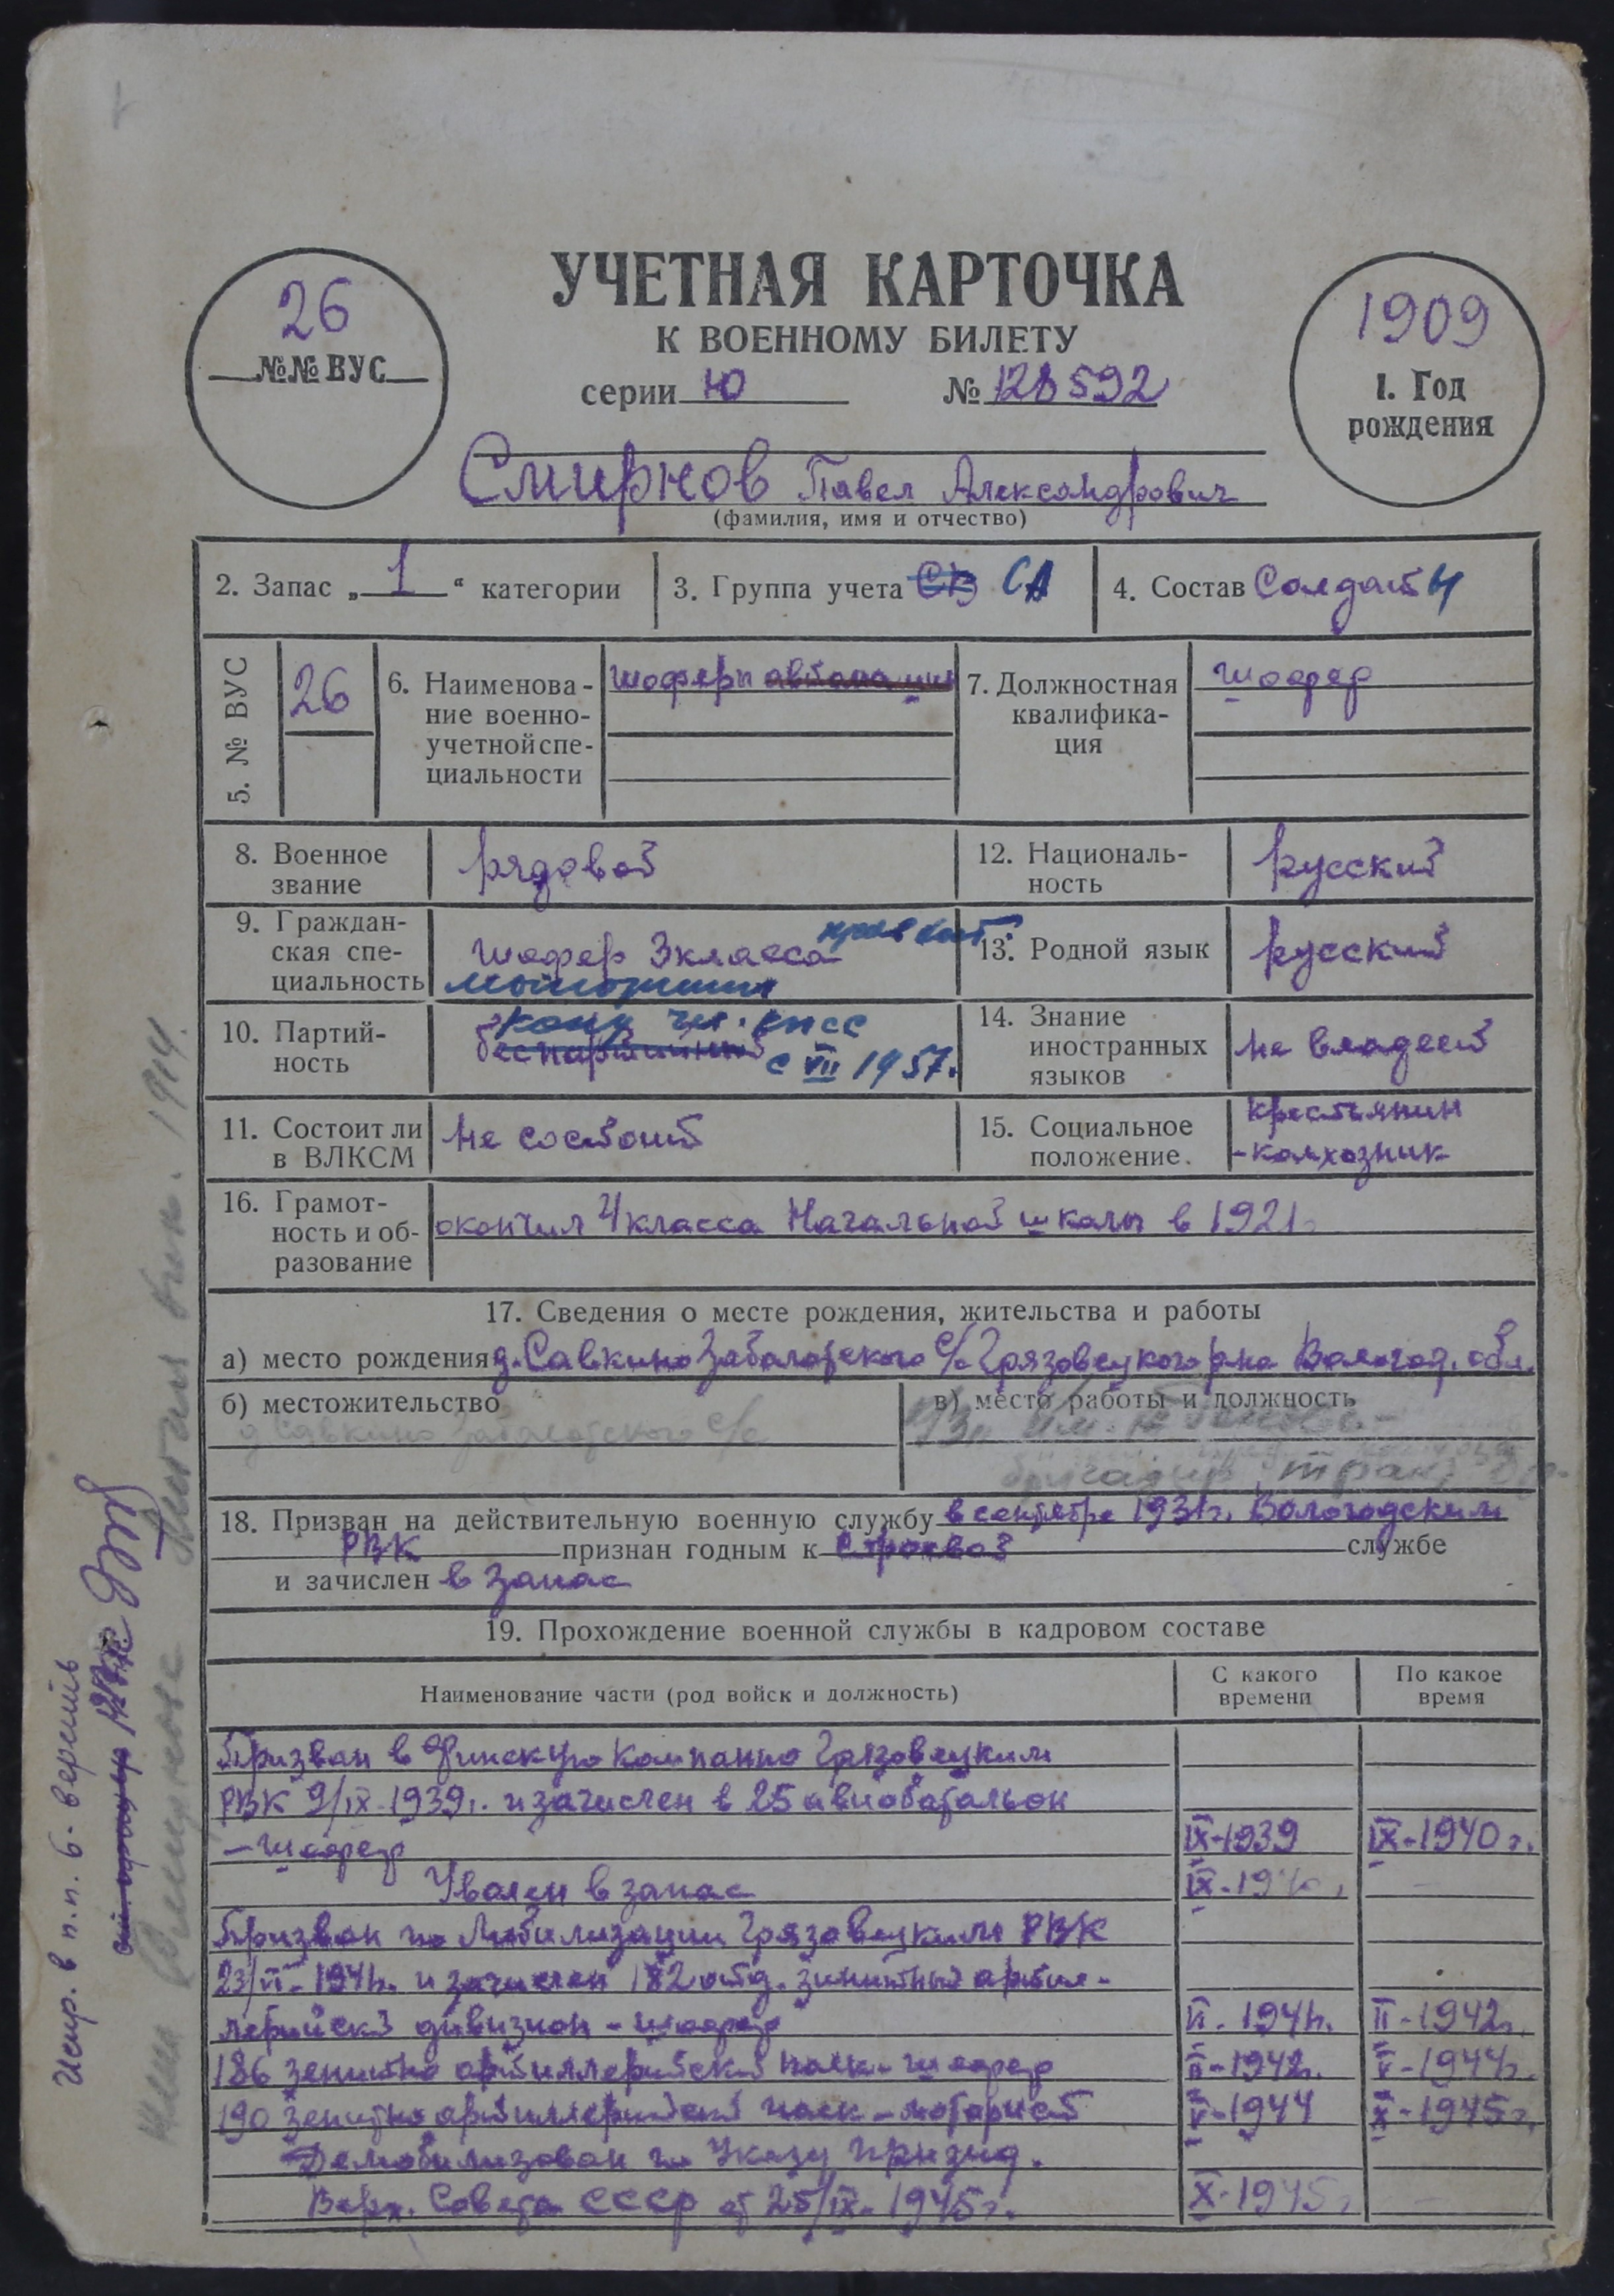 УЧЕТНАЯ КАРТОЧКА
К ВОЕННОМУ БИЛЕТУ
серии Ю № 128592
26
№№ ВУС
1909
1. Год
рождения
Смирнов Павел Александрович
(фамилия, имя и отчество)
2. Запас „ 1 “ категории
3. Группа учета СВ СА
4. Состав Солдаты
5. № ВУС
26
6. Наименова-
ние военно-
учетной спе-
циальности
шоферы
7. Должностная
квалифика-
ция
шофер
8. Военное
звание
рядовой
12. Националь-
ность
русский
9. Граждан-
ская спе-
циальность
шофер 3 класса
13. Родной язык
русский
10. Партий-
ность
чл. КПСС
беспартийный с VII 1957.
14. Знание
иностранных
языков
не владеет
11. Состоит ли
в ВЛКСМ
не состоит
15. Социальное
положение.
крестьянин
-колхозник
16. Грамот-
ность и об-
разование
окончил 4 класса Начальной школы в 1921г
17. Сведения о месте рождения, жительства и работы
а) место рождения д. Савкино Заболотского с/с Грязовецкого р-на Вологод. обл.
б) местожительство
д Савкино Заболотского с/с
в) место работы и должность
бригадир
18. Призван на действительную военную службу в сентябре 1931г. Вологодским
РВК признан годным к строевой службе
и зачислен в запас
19. Прохождение военной службы в кадровом составе
Наименование части (род войск и должность)
С какого
времени
По какое
время
Призван в Финскую компанию Грязовецким
РВК 9/IX-1939г. и зачислен в 25 авиобатальон
- шофер IX-1939 IX-1940 г.
Уволен в запас IX-1940
Призван по Мобилизации Грязовецким РВК
23/VI-1941г. и зачислен 182 отд. зинитный артил-
лерийский дивизион - шофер VI-1941г. II-1942г.
186 зенитно артиллерийский полк - шофер II-1942г. V-1944г.
190 зенитно артиллерийский полк - моторист V-1944 X-1945г.
Демобилизован по Указу През­ид.
Верх. Совета СССР от 25/IX-1945г. X-1945г
Испр. в п. п. 6- верить